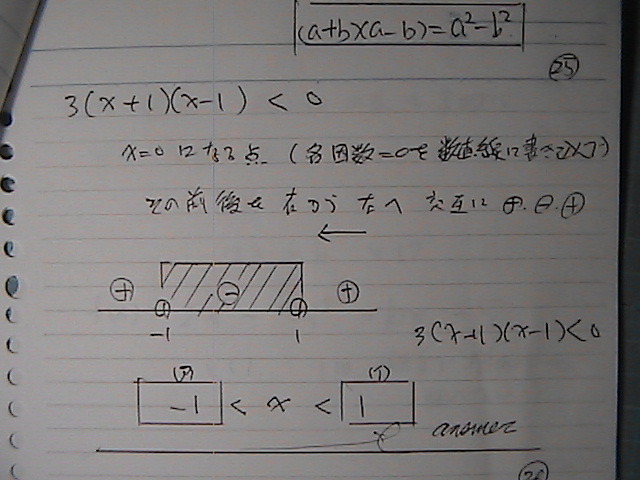 (a+b)(a-b)=a²-b²
㉕
3(x+1)(x-1) < 0
x=0 になる点 (各因数=0を数直線に書き込む)
その前後を右から左へ交互に ⊕.⊖.⊕
←
⊕ ⊖ ⊕
-1 1
3(x+1)(x-1)<0
(ア) (イ)
-1 < x < 1
answer
㉖